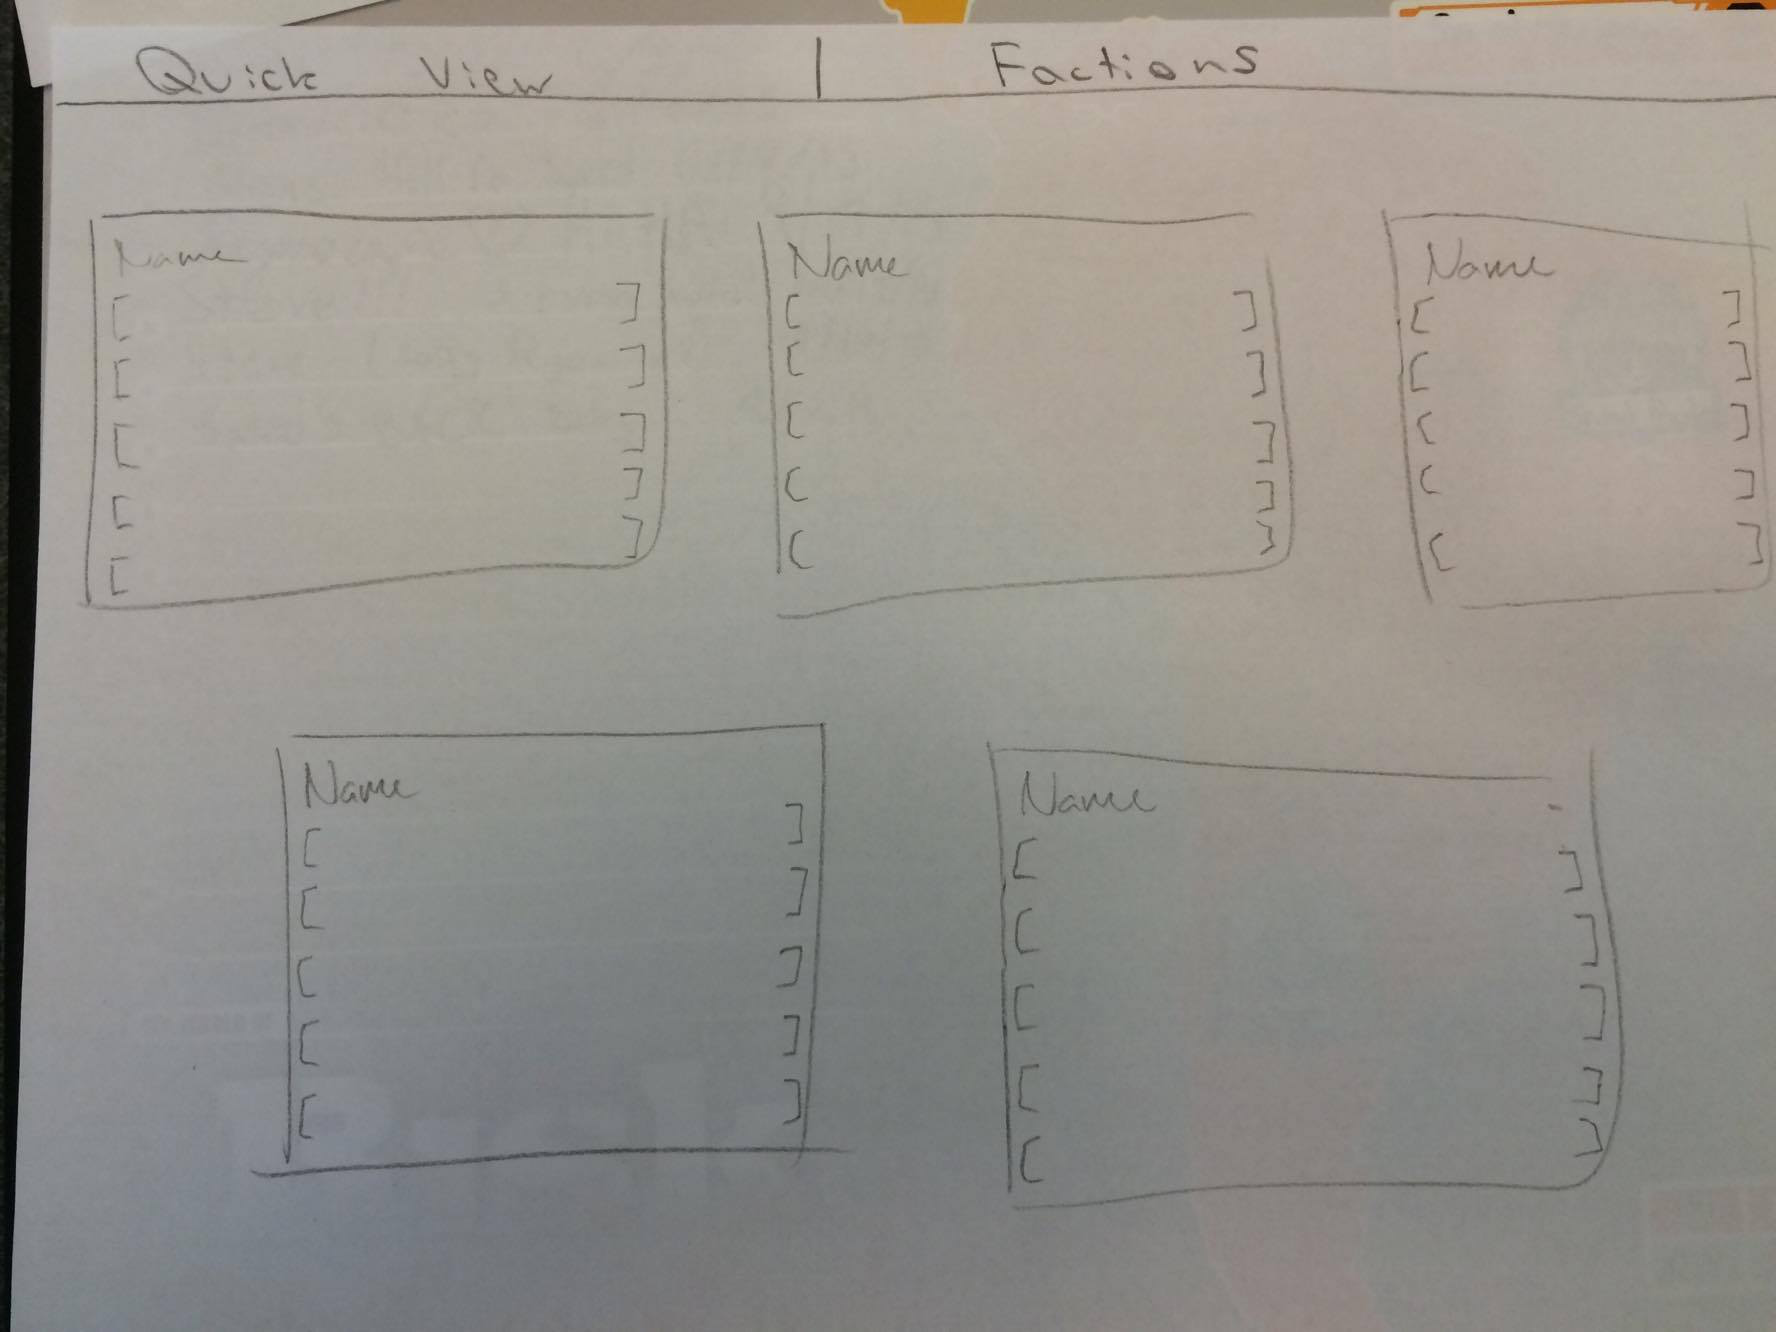 Quick View | Factions
Name Name Name
[ ] [ ] [ ]
[ ] [ ] [ ]
[ ] [ ] [ ]
[ ] [ ] [ ]
[ ] [ ] [ ]
Name Name
[ ] [ ]
[ ] [ ]
[ ] [ ]
[ ] [ ]
[ ] [ ]